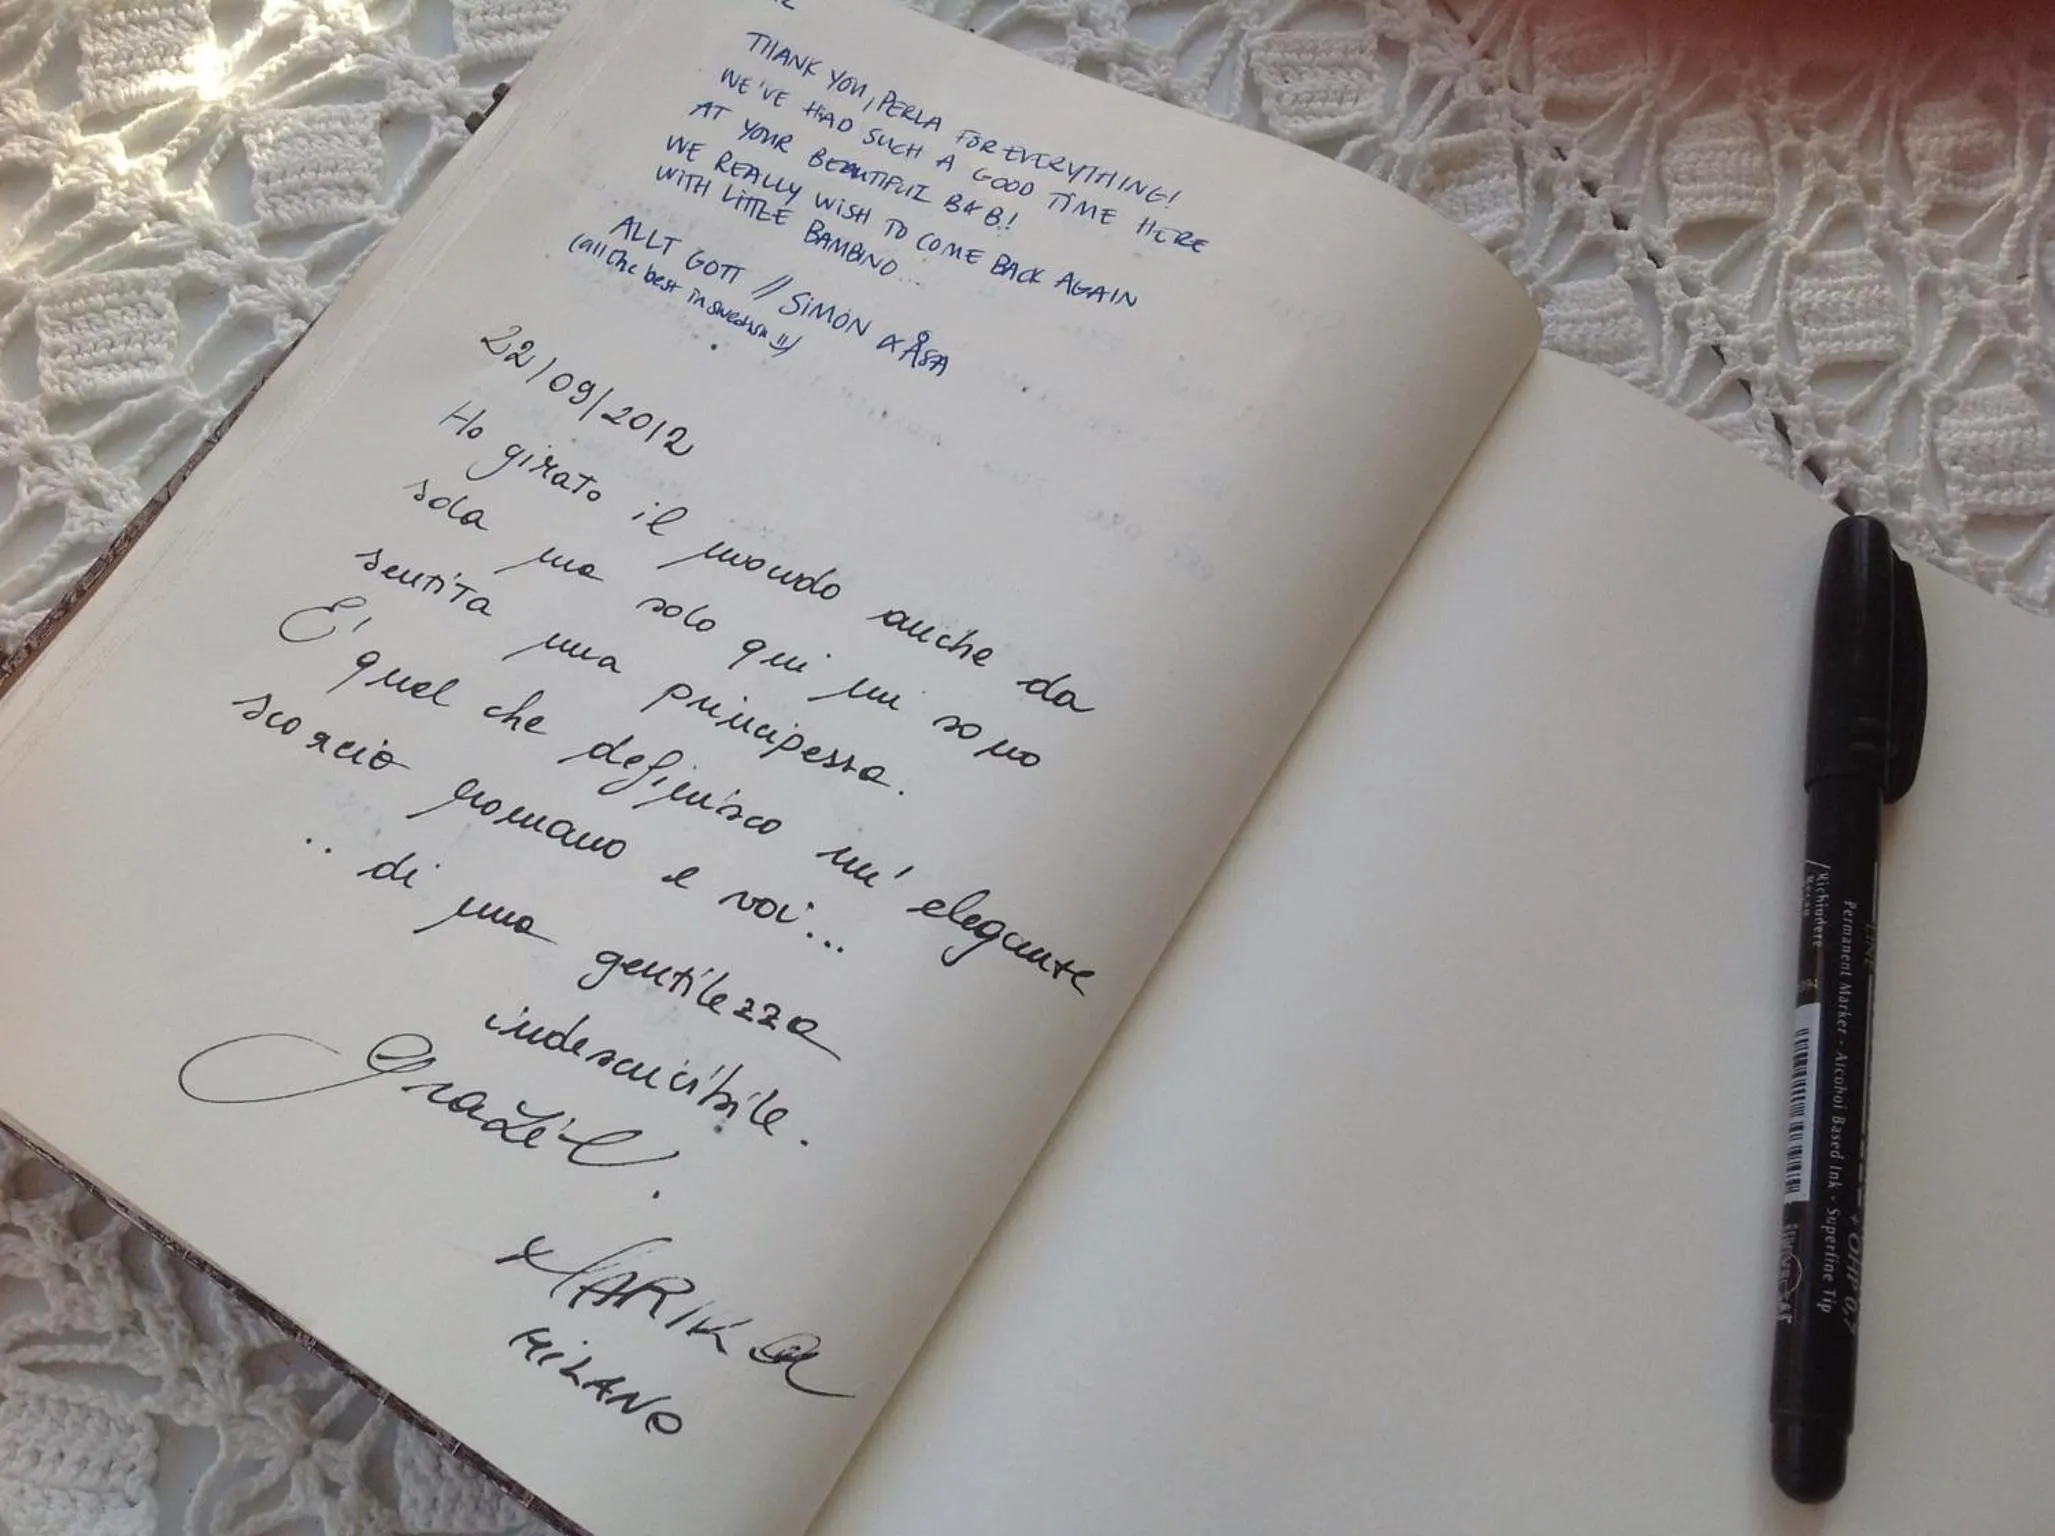 THANK YOU, PERLA FOR EVERYTHING!
WE'VE HAD SUCH A GOOD TIME HERE
AT YOUR BEAUTIFUL B&B!
WE REALLY WISH TO COME BACK AGAIN
WITH LITTLE BAMBINO...
ALLT GOTT // SIMON & ÅSA
(all the best in swedish =))
22/09/2012
Ho girato il mondo anche da
sola ma solo qui mi sono
sentita una principessa.
E' quel che definisco un' elegante
scorcio romano e voi...
.. di una gentilezza
indescrivibile.
Grazie.
MARIKA
MILANO
/Richiudere
Permanent Marker - Alcohol Based Ink - Superfine Tip